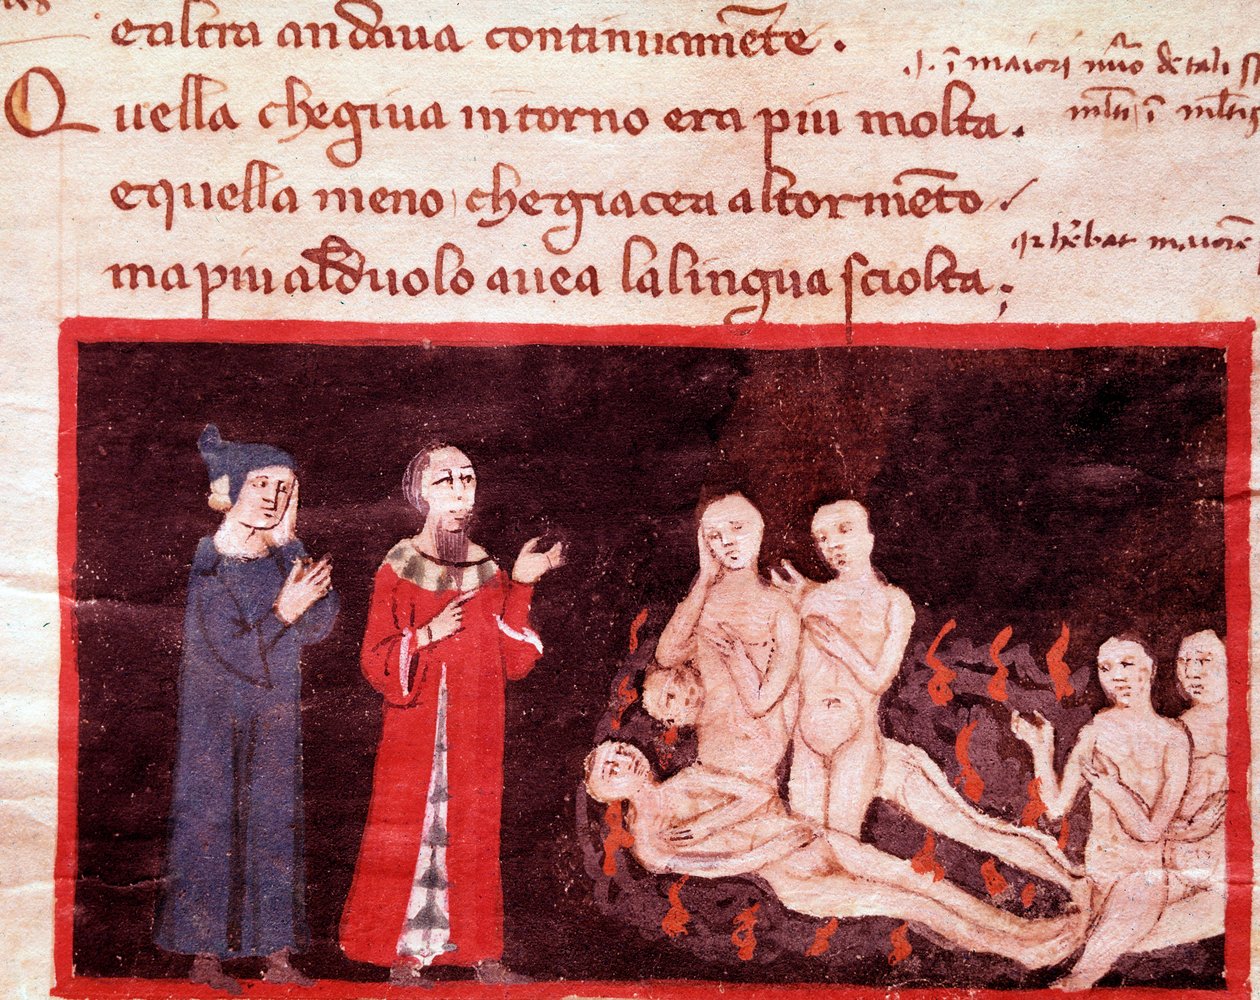 ealtra andaua continuamēte .
Quella chegiua intorno era piu molta .
equella meno chegiacea altormēto ./
mapiu alduolo auea lalingua sciolta ;
ī maiori nūo de tali
maiorē